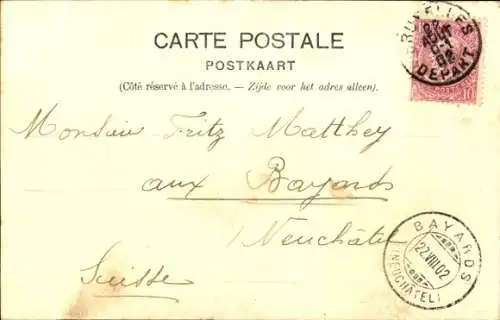 CARTE POSTALE
POSTKAART
(Côté réservé à l'adresse. — Zijde voor het adres alleen.)
BRUXELLES
DEPART
Monsieur Fritz Matthey
aux Bayards
Neuchâtel
Suisse
BAYARDS
22.VIII.02
(NEUCHÂTEL)